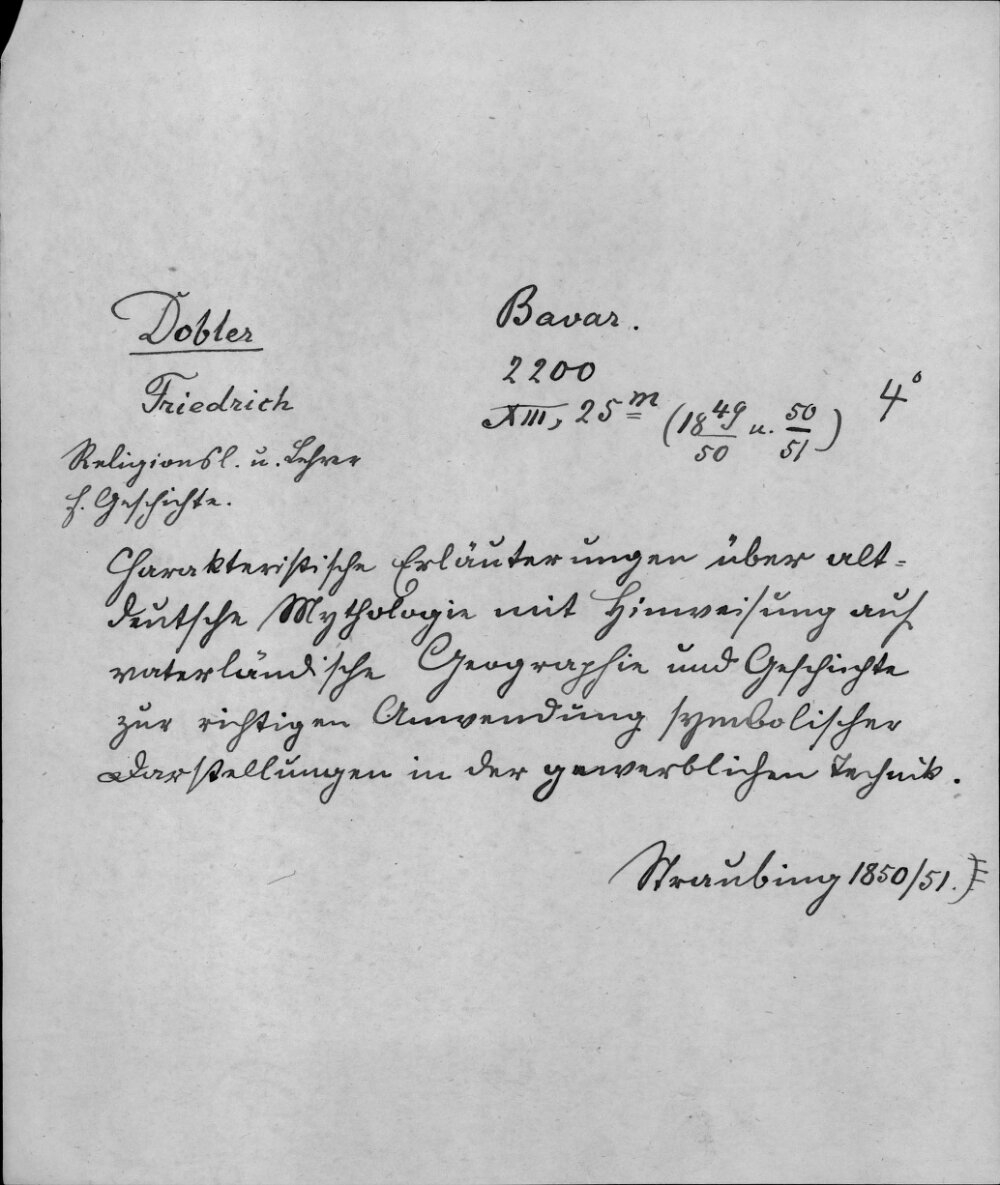 Dobler
Friedrich
Religionsl. u. Lehrer
f. Geschichte.
Bavar.
2200
XIII, 25 m (18 49/50 u. 50/51) 4°
Charakteristische Erläuterungen über alt-
deutsche Mythologie mit Hinweisung auf
vaterländische Geographie und Geschichte
zur richtigen Anwendung symbolischer
Darstellungen in der gewerblichen Technik.
Straubing 1850/51.)